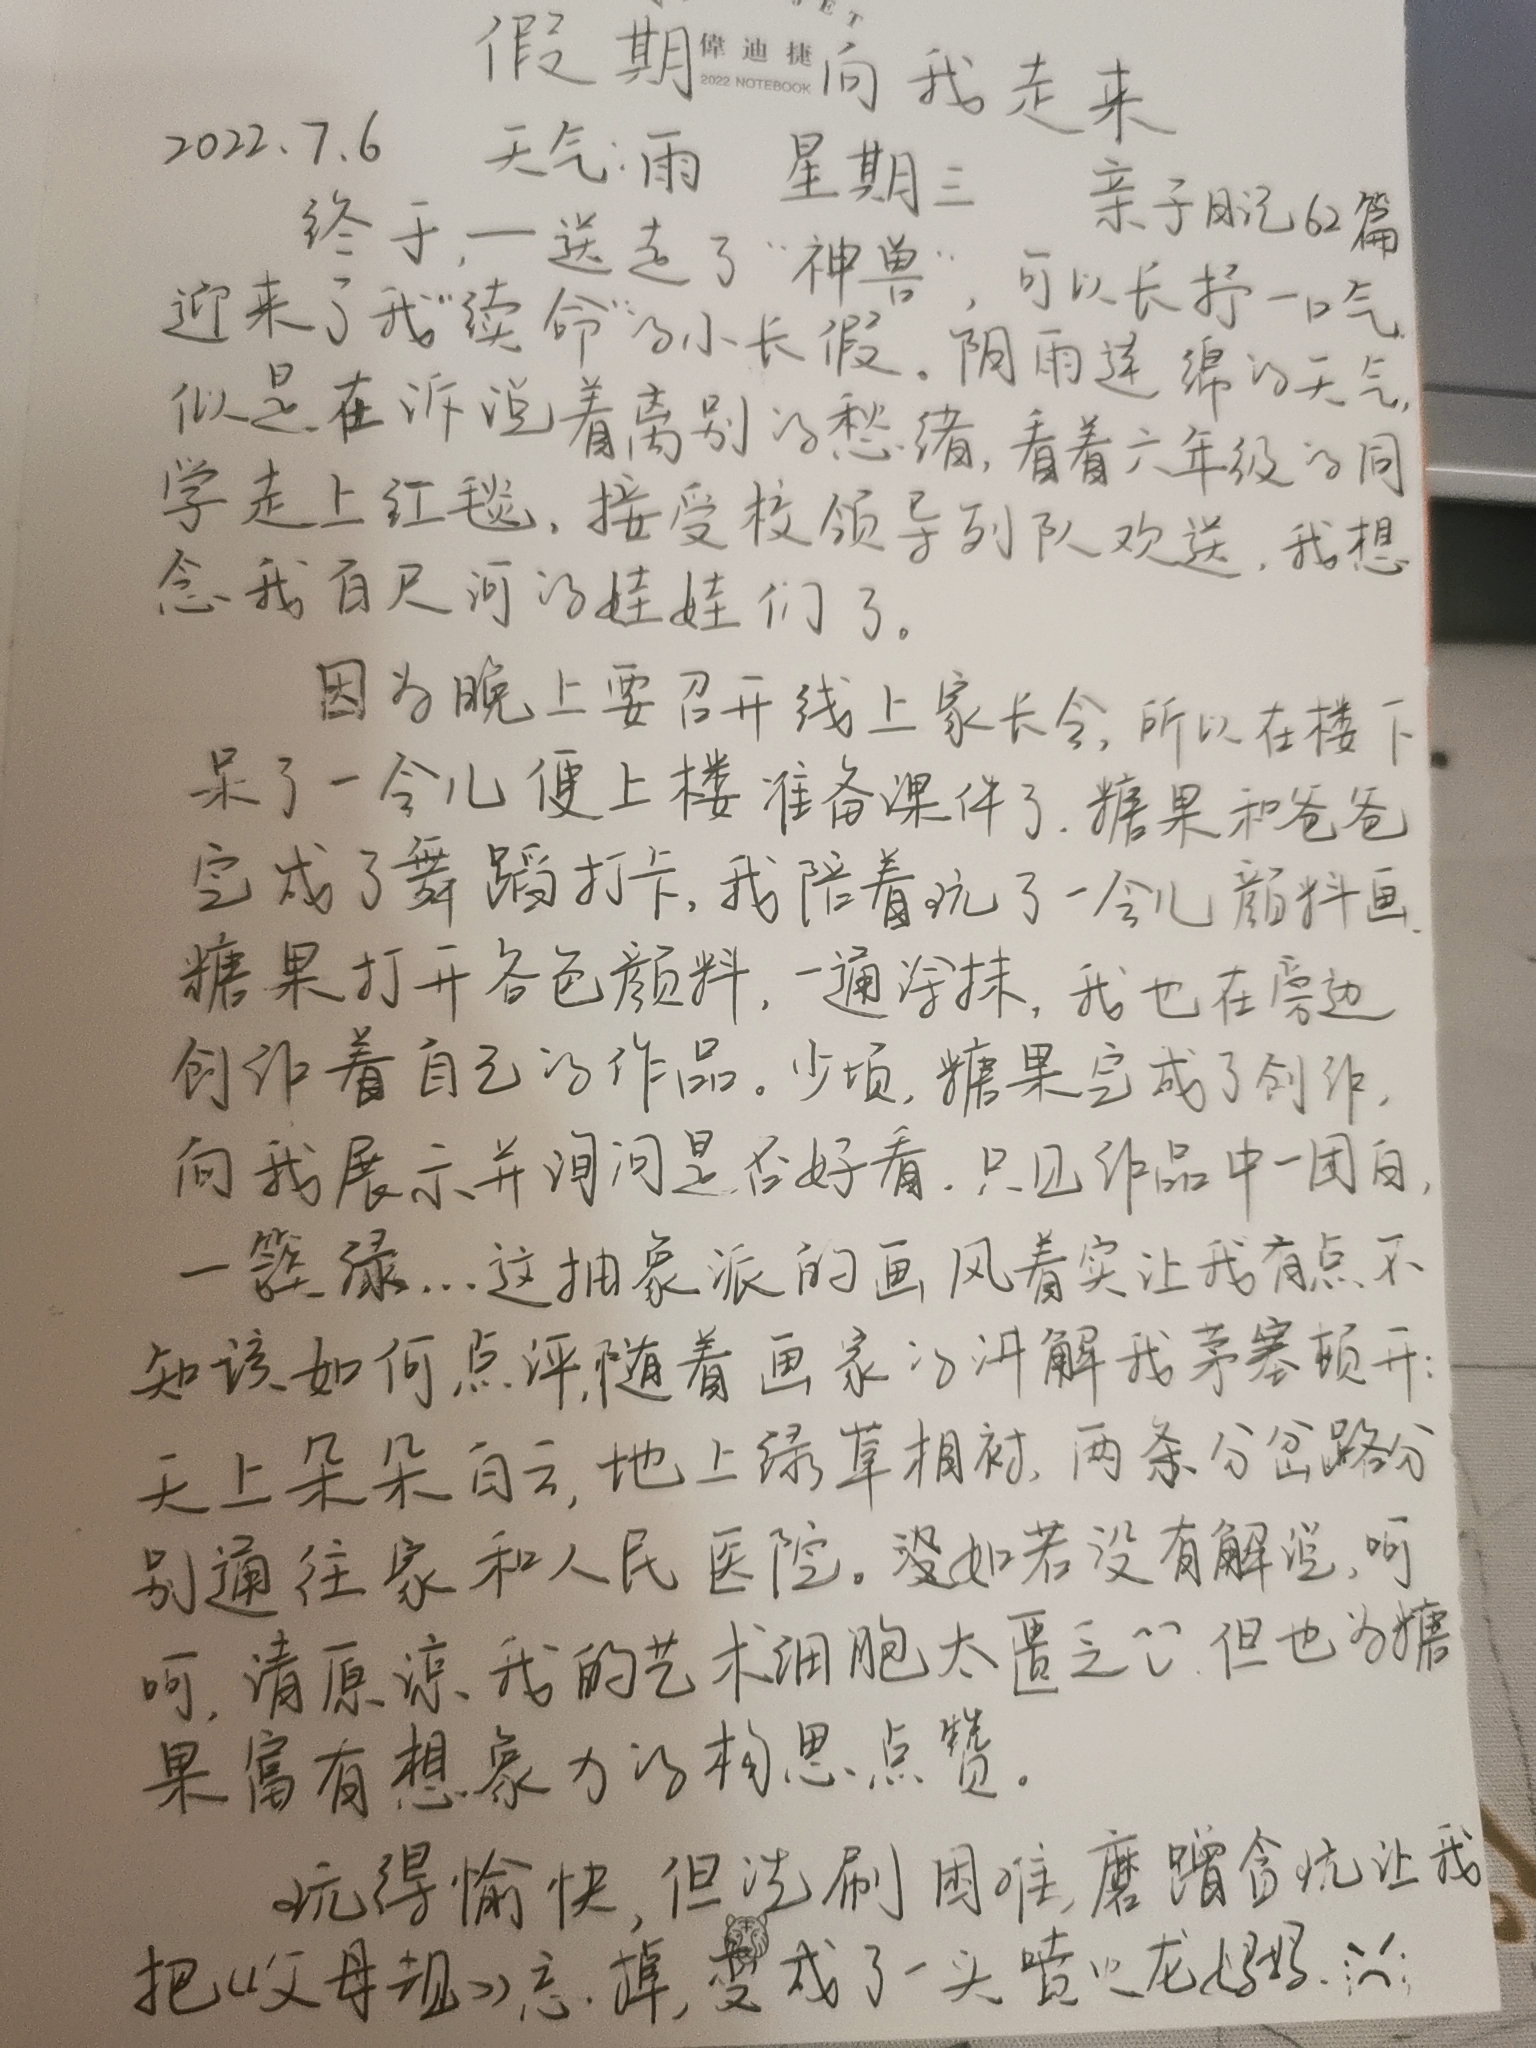 假期向我走来
偉迪捷
2022 NOTEBOOK
2022.7.6 天气:雨 星期三 亲子日记62篇
终于,一送走了“神兽”,可以长抒一口气
迎来了我“续命”的小长假。阴雨连绵的天气,
似是在诉说着离别的愁绪,看着六年级的同
学走上红毯,接受校领导列队欢送,我想
念我百尺河的娃娃们了。
因为晚上要召开线上家长会,所以在楼下
呆了一会儿便上楼准备课件了.糖果和爸爸
完成了舞蹈打卡,我陪着玩了一会儿颜料画.
糖果打开各色颜料,一通涂抹,我也在旁边
创作着自己的作品。少顷,糖果完成了创作,
向我展示并询问是否好看.只见作品中一团白,
一篮绿...这抽象派的画风着实让我有点不
知该如何点评,随着画家的讲解我茅塞顿开:
天上朵朵白云,地上绿草相衬,两条分岔路分
别通往家和人民医院。没如若没有解说,呵
呵,请原谅我的艺术细胞太匮乏.但也为糖
果富有想象力的构思点赞。
玩得愉快,但洗刷困难,磨蹭贪玩让我
把《父母规》忘掉,变成了一头喷火龙妈妈.